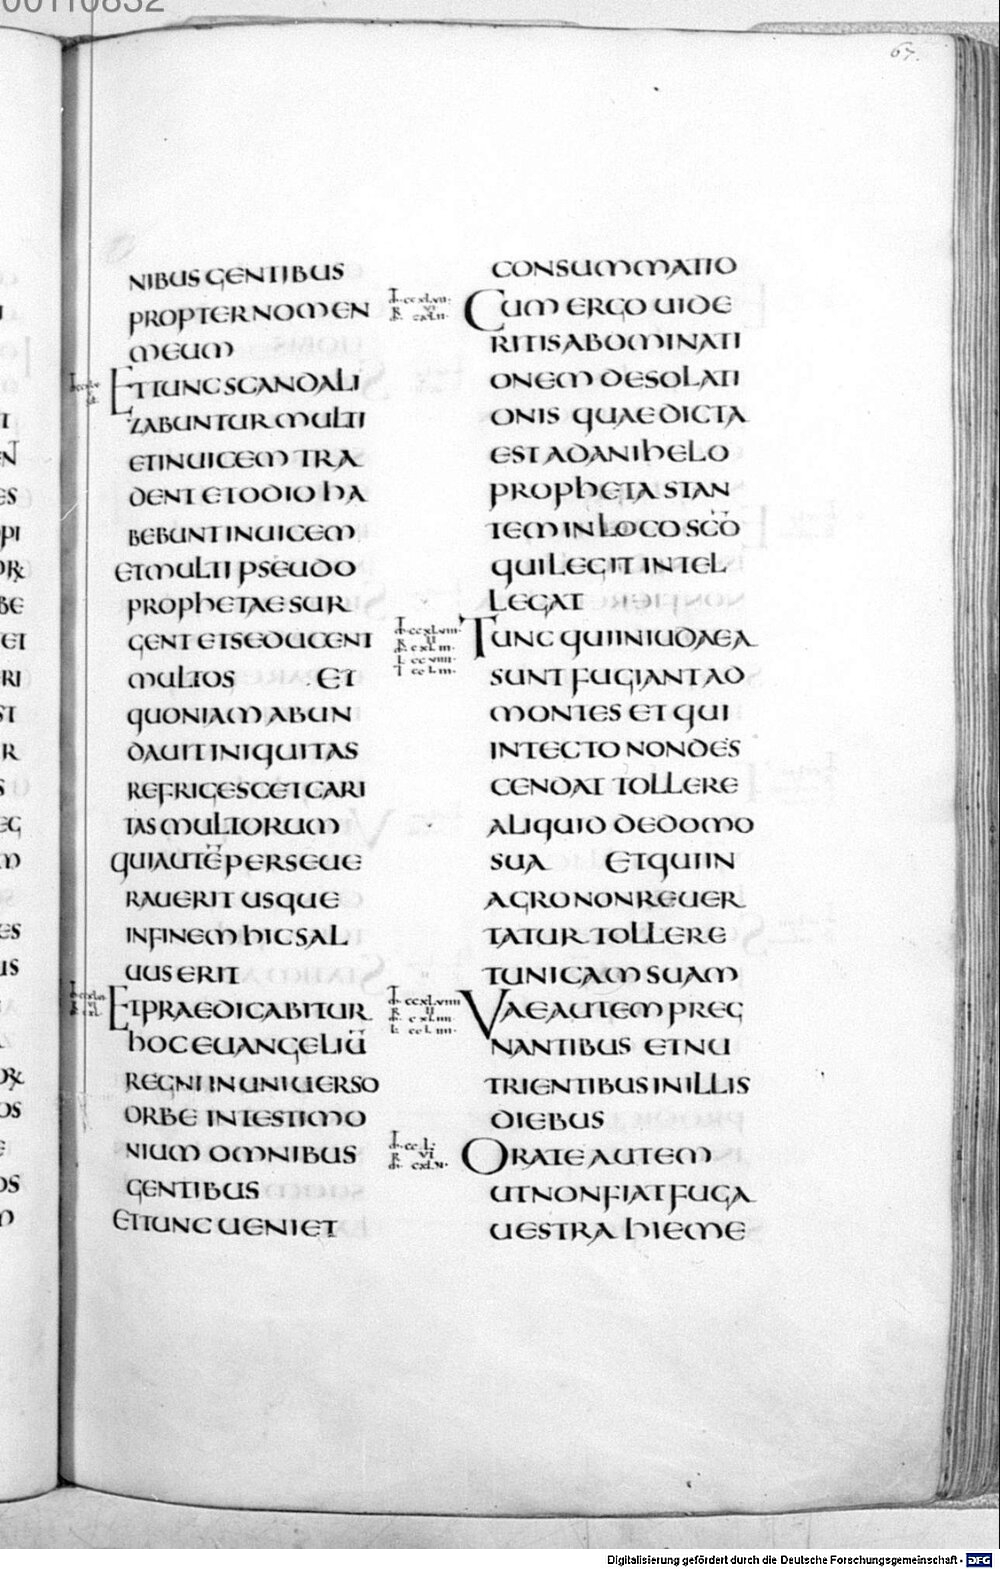 00110832
67.
NIBUS GENTIBUS
PROPTER NOMEN
MEUM
ET TUNC SCANDALI
ZABUNTUR MULTI
ET INUICEM TRA
DENT ET ODIO HA
BEBUNT INUICEM
ET MULTI PSEUDO
PROPHETAE SUR
GENT ET SEDUCENT
MULTOS ET
QUONIAM ABUN
DAUIT INIQUITAS
REFRIGESCET CARI
TAS MULTORUM
QUI AUTĒ PERSEUE
RAUERIT USQUE
IN FINEM HIC SAL
UUS ERIT
ET PRAEDICABITUR
HOC EUANGELIŪ
REGNI IN UNIUERSO
ORBE IN TESTIMO
NIUM OMNIBUS
GENTIBUS
ET TUNC UENIET
CONSUMMATIO
CUM ERGO UIDE
RITIS ABOMINATI
ONEM DESOLATI
ONIS QUAE DICTA
EST A DANIHELO
PROPHETA STAN
TEM IN LOCO SCŌ
QUI LEGIT INTEL
LEGAT
TUNC QUI IN IUDAEA
SUNT FUGIANT AD
MONTES ET QUI
IN TECTO NON DES
CENDAT TOLLERE
ALIQUID DE DOMO
SUA ET QUI IN
AGRO NON REUER
TATUR TOLLERE
TUNICAM SUAM
VAE AUTEM PREG
NANTIBUS ET NU
TRIENTIBUS IN ILLIS
DIEBUS
ORATE AUTEM
UT NON FIAT FUGA
UESTRA HIEME
Digitalisierung gefördert durch die Deutsche Forschungsgemeinschaft - DFG